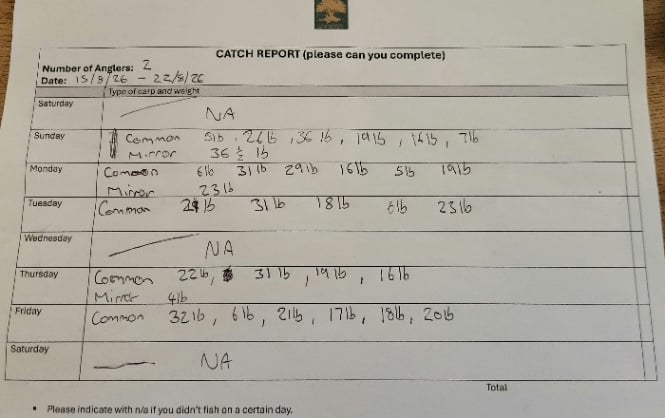 CATCH REPORT (please can you complete)
Number of Anglers: 2
Date: 15/8/26 - 22/8/26
Type of carp and weight
Saturday NA
Sunday Common 5lb, 26lb, 36lb, 19lb, 16lb, 7lb
Mirror 36 ½ lb
Monday Common 6lb 31lb 29lb 16lb 5lb 19lb
Mirror 23lb
Tuesday Common lb 31lb 18lb 6lb 23lb
Wednesday NA
Thursday Common 22lb, 31lb, 19lb, 16lb
Mirror 4lb
Friday Common 32lb, 6lb, 21lb, 17lb, 18lb, 20lb
Saturday NA
Total
• Please indicate with n/a if you didn't fish on a certain day.